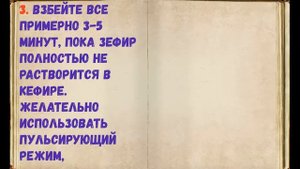 3. ВЗБЕЙТЕ ВСЕ
ПРИМЕРНО 3-5
МИНУТ, ПОКА ЗЕФИР
ПОЛНОСТЬЮ НЕ
РАСТВОРИТСЯ В
КЕФИРЕ.
ЖЕЛАТЕЛЬНО
ИСПОЛЬЗОВАТЬ
ПУЛЬСИРУЮЩИЙ
РЕЖИМ,